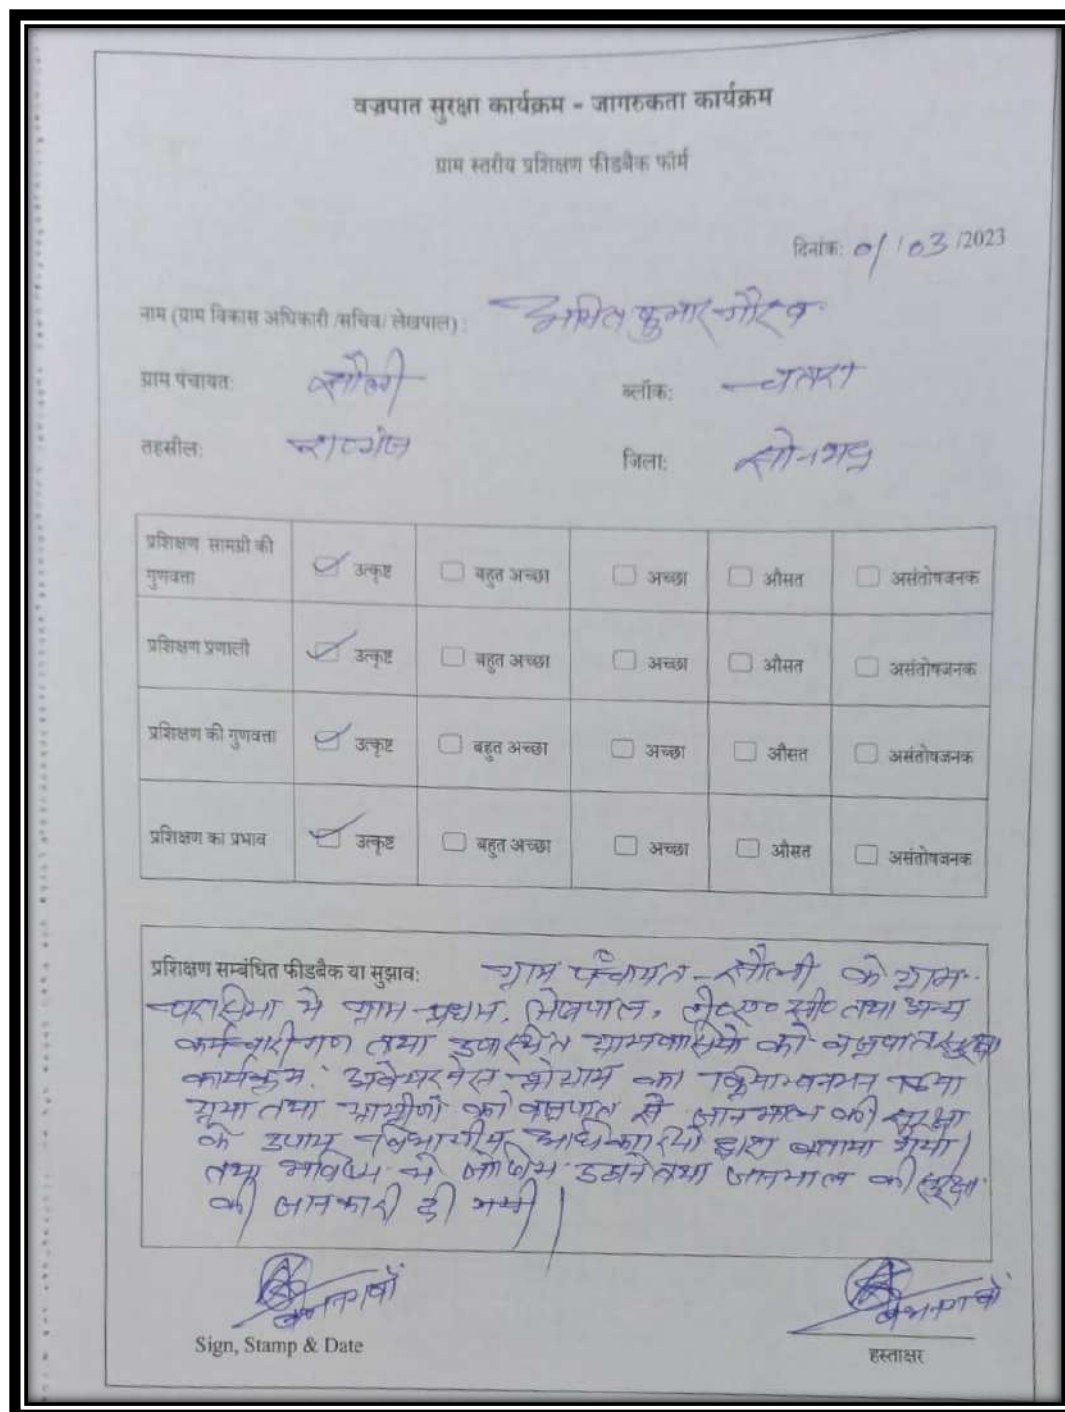 वज्रपात सुरक्षा कार्यक्रम - जागरुकता कार्यक्रम
ग्राम स्तरीय प्रशिक्षण फीडबैक फॉर्म
दिनांक: 01/03/2023
नाम (ग्राम विकास अधिकारी /सचिव/ लेखपाल) : अमित कुमार गौरव
ग्राम पंचायत: ब्लॉक: चतरा
तहसील: जिला: सोनभद्र
प्रशिक्षण सामग्री की
गुणवत्ता उत्कृष्ट बहुत अच्छा अच्छा औसत असंतोषजनक
प्रशिक्षण प्रणाली उत्कृष्ट बहुत अच्छा अच्छा औसत असंतोषजनक
प्रशिक्षण की गुणवत्ता उत्कृष्ट बहुत अच्छा अच्छा औसत असंतोषजनक
प्रशिक्षण का प्रभाव उत्कृष्ट बहुत अच्छा अच्छा औसत असंतोषजनक
प्रशिक्षण सम्बंधित फीडबैक या सुझाव: ग्राम पंचायत के ग्राम
मे ग्राम प्रधान, लेखपाल, तथा अन्य
कर्मचारीगण तथा उपस्थित ग्रामवासियो को वज्रपात सुरक्षा
कार्यक्रम का
गया तथा ग्रामीणों को वज्रपात से जानमाल की सुरक्षा
के उपाय विभागीय अधिकारियों द्वारा बताया गया।
तथा भविष्य मे जोखिम तथा जानमाल की सुरक्षा
की जानकारी दी गयी।
Sign, Stamp & Date हस्ताक्षर